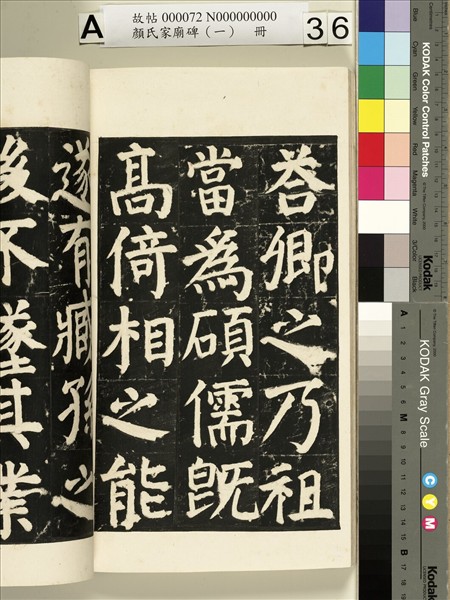 A
故帖 000072 N000000000
顏氏家廟碑（一） 冊
36
荅卿之乃祖
當為碩儒既
髙倚相之能
遂有臧孫之
後不墜其業
KODAK Color Control Patches
Blue
Cyan
Green
Yellow
Red
Magenta
White
3/Color
Black
Kodak
KODAK Gray Scale
C Y M
Kodak
A 1 2 3 4 5 6 M 8 9 10 11 12 13 14 15 B 17 18 19